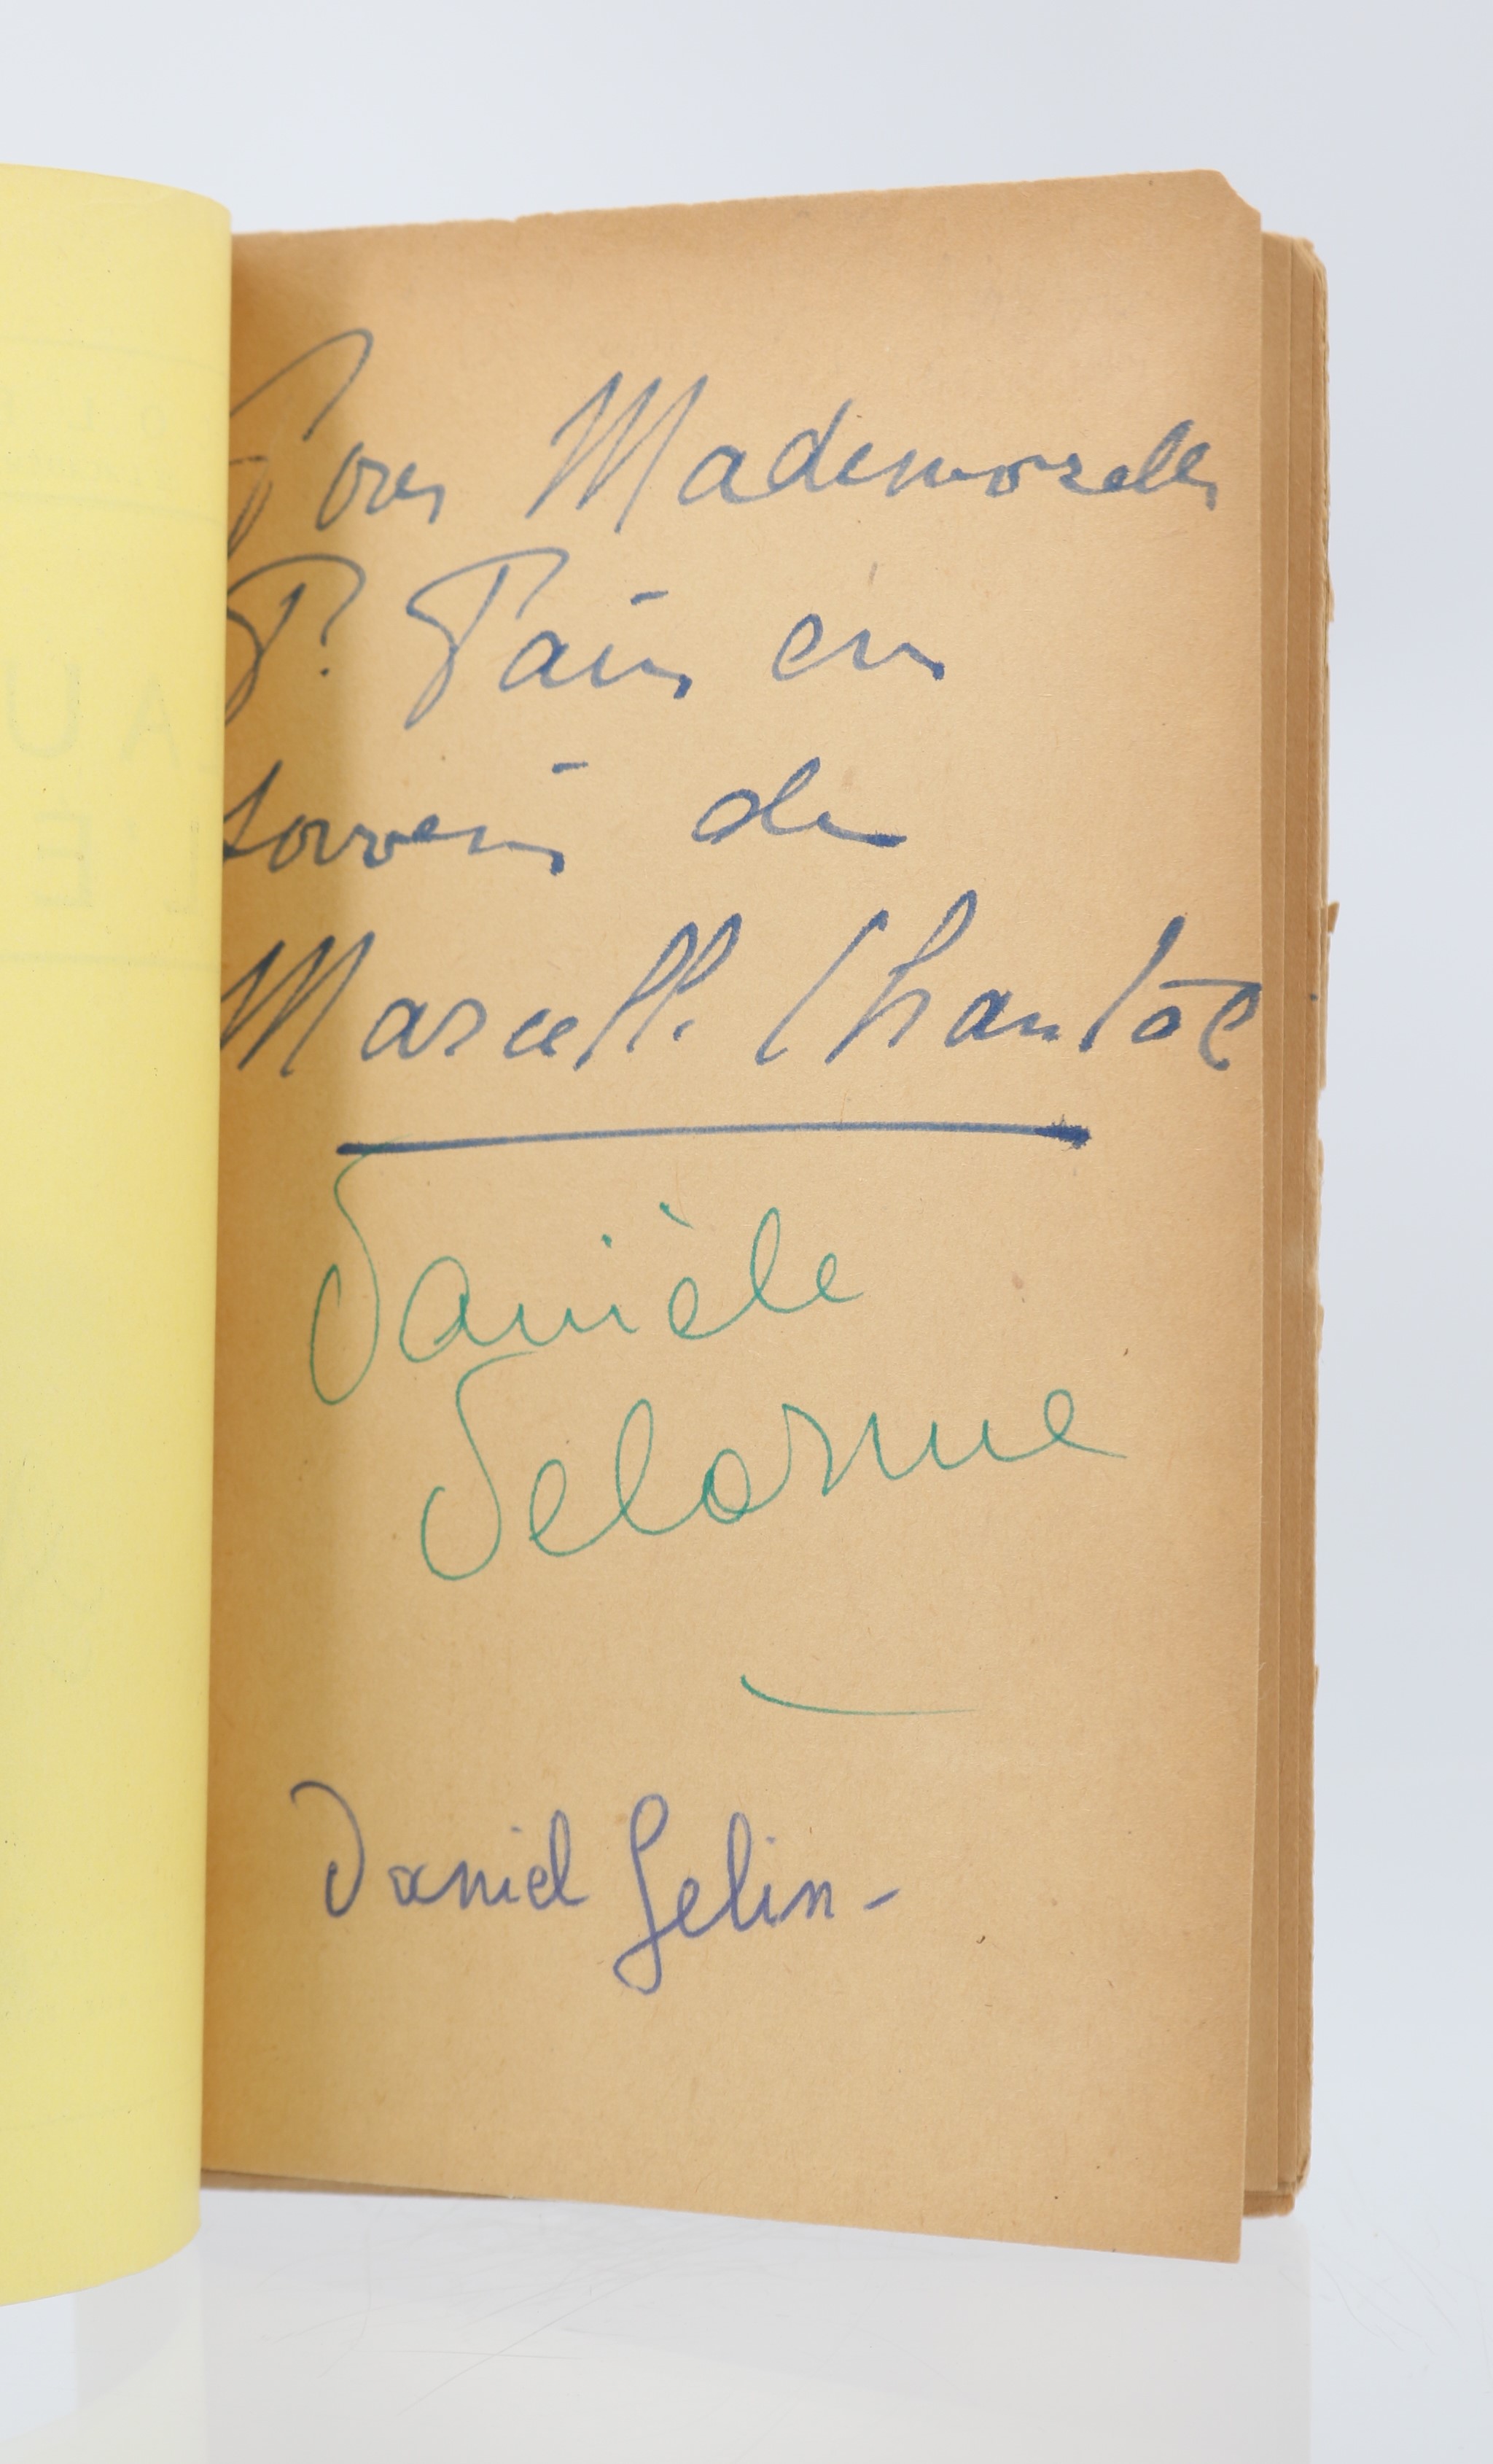 Pour Mademoiselle
P. Pain en
souvenir de
Marcelle Chantal
Danièle
Delorme
Daniel Gelin -